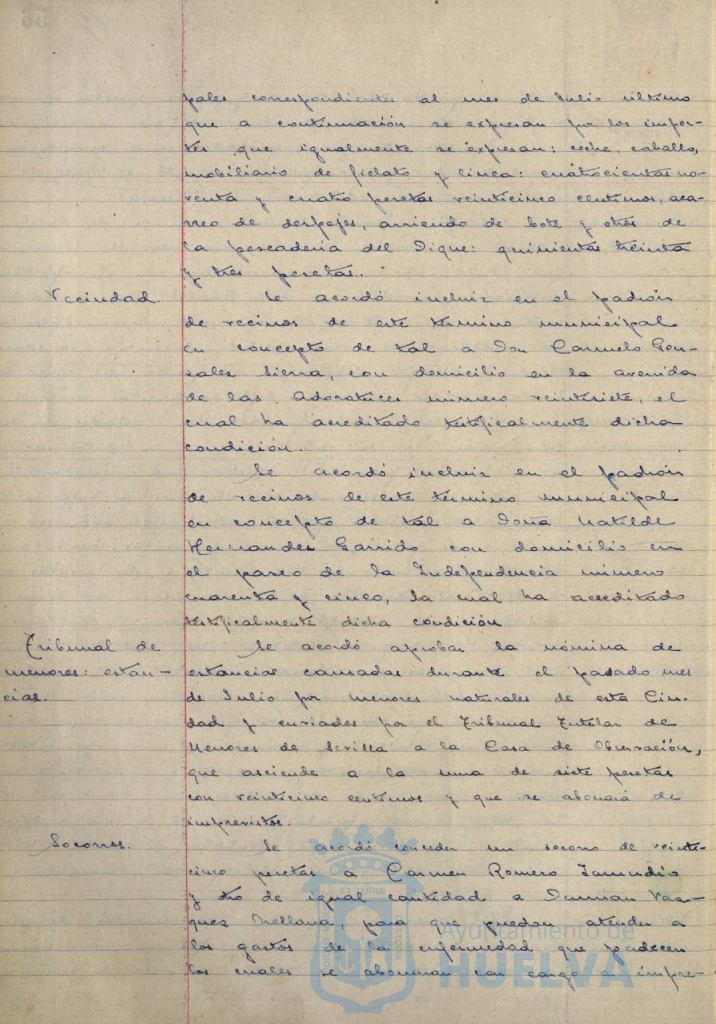 pales correspondientes al mes de Julio último
que a continuación se expresan por los impor-
tes que igualmente se expresan: coche, caballo,
mobiliario de fielato y línea: cuatrocientas no-
venta y cuatro pesetas veinticinco centimos, aca-
rreo de despojos, arriendo de bote y otros de
la pescadería del Dique: quinientas treinta
y tres pesetas.
Vecindad.
Se acordó incluir en el padrón
de vecinos de este término municipal
en concepto de tal a Don Carmelo Gon-
sales Sierra, con domicilio en la avenida
de las Adoratrices número veintisiete, el
cual ha acreditado testificalmente dicha
condición.
Se acordó incluir en el padrón
de vecinos de este término municipal
en concepto de tal a Doña Matilde
Hernandes Garrido con domicilio en
el paseo de la Independencia número
cuarenta y cinco, la cual ha acreditado
testificalmente dicha condición
Tribunal de
menores: estan-
cias.
Se acordó aprobar la nómina de
estancias causadas durante el pasado mes
de Julio por menores naturales de esta Ciu-
dad y enviados por el Tribunal Tutelar de
Menores de Sevilla a la Casa de Observación,
que asciende a la suma de siete pesetas
con veinticinco centimos y que se abonará de
imprevistos.
Socorros.
Se acordó conceder un socorro de veinti-
cinco pesetas a Carmen Romero Zamudio
y otro de igual cantidad a Damian Vas-
ques Orellana, para que puedan atender a
los gastos de la enfermedad que padecen
los cuales se abonaran con cargo a impre-
Ayuntamiento de
HUELVA